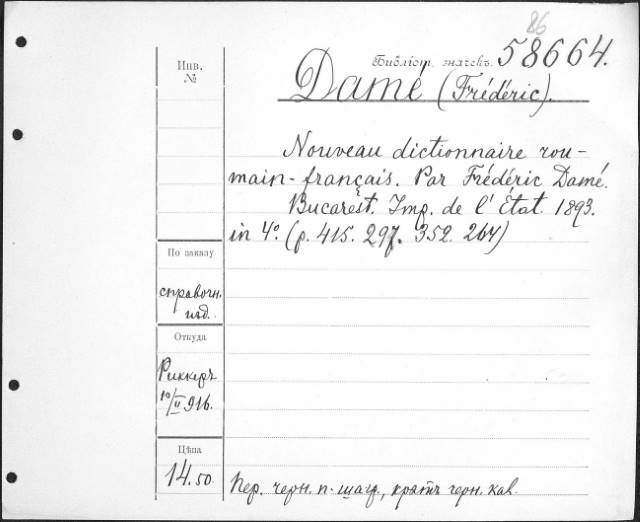 86
Библіот. значекъ. 58664.
Инв.
№
Damé (Frédéric).
Nouveau dictionnaire rou-
main-français. Par Frédéric Damé.
Bucarest. Imp. de l'État. 1893.
in 4º. (p. 415. 297. 352. 264)
По заказу
справочн.
изд.
Откуда
Риккеръ
10/II 916.
Цѣна
14.50
Пер. черн. п-шагр., кратъ черн. кал.